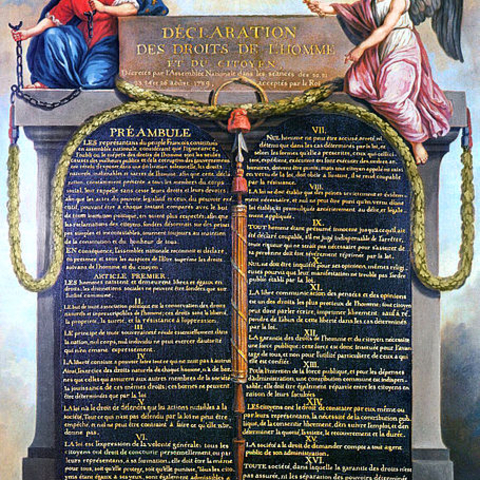 DÉCLARATION
DES DROITS DE L'HOMME
ET DU CITOYEN,
Décrétés par l'Assemblée Nationale dans les séances des 20, 21
23, 24 et 26 août 1789, acceptés par le Roi
PRÉAMBULE
LES représentans du peuple Francois, constitués
en assemblée nationale, considérant que l'ignorance,
l'oubli ou le mépris des droits de l'homme sont les seules
causes des malheurs publics et de la corruption des gouvernemens
ont résolu d'exposer dans une déclaration solemnelle, les droits
naturels, inaliénables et sacrés de l'homme, afin que cette décla-
ration, constamment présente a tous les membres du corps
social, leur rappelle sans cesse leurs droits et leurs devoirs,
afin que les actes du pouvoir législatif et ceux du pouvoir exé-
cutif, pouvant être à chaque instant comparés avec le but
de toute institution politique, en soient plus respectés; afin que
les réclamations des citoyens, fondées désormais sur des princi-
pes simples et incontestables, tournent toujours au maintien
de la constitution et du bonheur de tous.
EN conséquence, l'assemblée nationale reconnoit et déclare,
en présence et sous les auspices de l'Etre suprême les droits
suivans de l'homme et du citoyen.
ARTICLE PREMIER.
LES hommes naissent et demeurent libres et égaux en
droits; les distinctions sociales ne peuvent être fondées que sur
l'utilité commune.
II.
LE but de toute association politique est la conservation des droits
naturels et imprescriptibles de l'homme; ces droits sont la liberté,
la propriété, la sureté, et la résistance à l'oppression.
III.
LE principe de toute souveraineté réside essentiellement dans
la nation, nul corps, nul individu ne peut exercer d'autorité
qui n'en émane expressement.
IV.
LA liberté consiste à pouvoir faire tout ce qui ne nuit pas à autrui
Ainsi, l'exercice des droits naturels de chaque homme, n'a de bor-
nes que celles qui assurent aux autres membres de la société
la jouissance de ces mêmes droits; ces bornes ne peuvent
être déterminées que par la loi
V.
LA loi n'a le droit de défendre que les actions nuisibles à la
société. Tout ce qui n'est pas défendu par la loi ne peut être
empêché, et nul ne peut être contraint à faire ce qu'elle n'or-
donne pas.
VI.
LA loi est l'expression de la volonté générale; tous les
citoyens ont droit de concourir personnellement, ou par
leurs représentans, à sa formation; elle doit être la même
pour tous, soit qu'elle protege, soit qu'elle punisse. Tous les cito-
yens étant égaux à ses yeux, sont également admissibles à
VII.
NUL homme ne peut être accusé, arreté, ni
détenu que dans les cas déterminés par la loi, et
selon les formes qu'elle a prescrites, ceux qui sollici-
tent, expédient, exécutent ou font exécuter des ordres ar-
bitraires, doivent être punis; mais tout citoyen appelé ou saisi
en vertu de la loi, doit obéir à l'instant, il se rend coupable
par la résistance.
VIII.
LA loi ne doit établir que des peines strictement et évidem-
ment nécessaires, et nul ne peut être puni qu'en vertu d'une
loi établie et promulguée antérieurement au délit, et légale-
ment appliquée.
IX.
TOUT homme étant présumé innocent jusqu'à ce qu'il ait
été déclaré coupable, s'il est jugé indispensable de l'arrêter,
toute rigueur qui ne serait pas nécessaire pour s'assurer de
sa personne doit être sévèrement réprimée par la loi.
NUL ne doit être inquiété pour ses opinions, mêmes religi-
euses pourvu que leur manifestation ne trouble pas l'ordre
public établi par la loi.
XI.
LA libre communication des pensées et des opinions
est un des droits les plus precieux de l'homme; tout citoyen
peut donc parler, écrire, imprimer librement, sauf à ré-
pondre de l'abus de cette liberté dans les cas déterminés
par la loi.
XII.
LA garantie des droits de l'homme et du citoyen nécessite
une force publique; cette force est donc instituée pour l'avan-
tage de tous, et non pour l'utilité particuliere de ceux a qui
elle est confiée.
XIII.
POUR l'entretien de la force publique, et pour les dépenses
d'administration, une contribution commune est indispen-
sable, elle doit être également répartie entre les citoyens en
raison de leurs facultées
XIV.
LES citoyens ont le droit de constater par eux même ou
par leurs représentans, la nécessité de la contribution pub-
lique, de la consentir librement, d'en suivre l'emploi, et d'en
déterminer la quotité, l'assiette, le recouvrement et la durée.
XV.
LA société a le droit de demander compte a tout agent
public de son administration.
XVI.
TOUTE société, dans laquelle la garantie des droits n'est
pas assurée, ni la séparation des pouvoirs déterminée